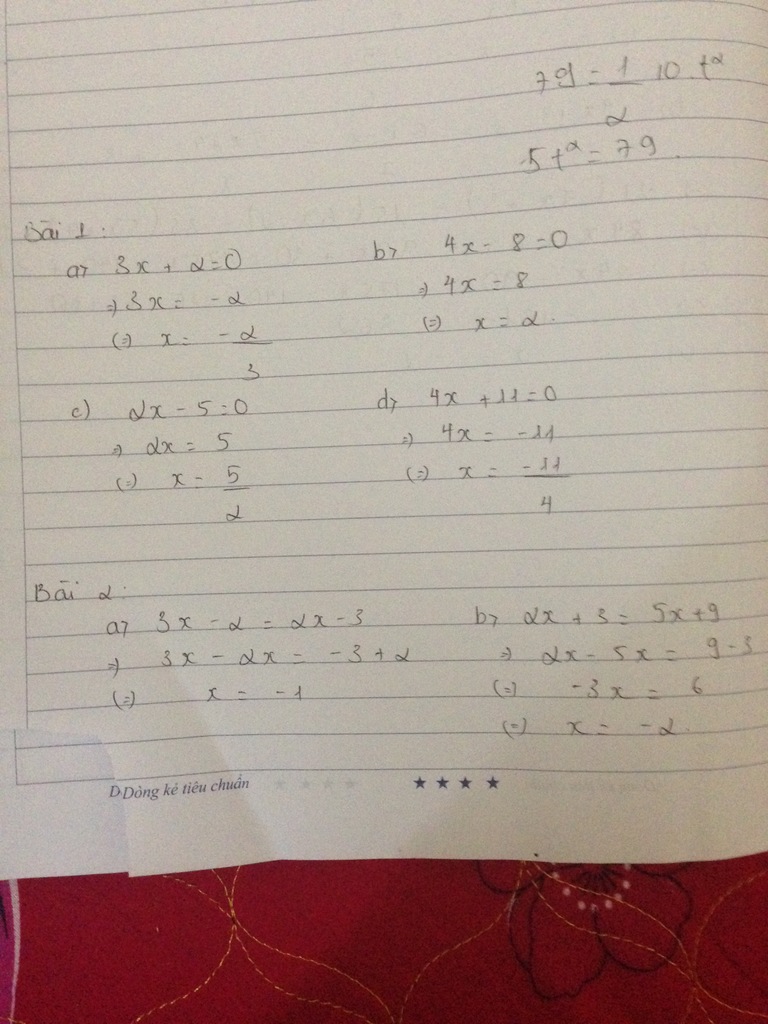 79 = 1/2 10.t²
5t² = 79.
Bài 1:
a, 3x + 2 = 0
=> 3x = -2
(=) x = -2/3
b, 4x - 8 = 0
=> 4x = 8
(=) x = 2.
c) 2x - 5 = 0
=> 2x = 5
(=) x = 5/2
d, 4x + 11 = 0
=> 4x = -11
(=) x = -11/4
Bài 2:
a, 3x - 2 = 2x - 3
=> 3x - 2x = -3 + 2
(=) x = -1
b, 2x + 3 = 5x + 9
=> 2x - 5x = 9 - 3
(=) -3x = 6
(=) x = -2.
D.Dòng kẻ tiêu chuẩn ★ ★ ★ ★